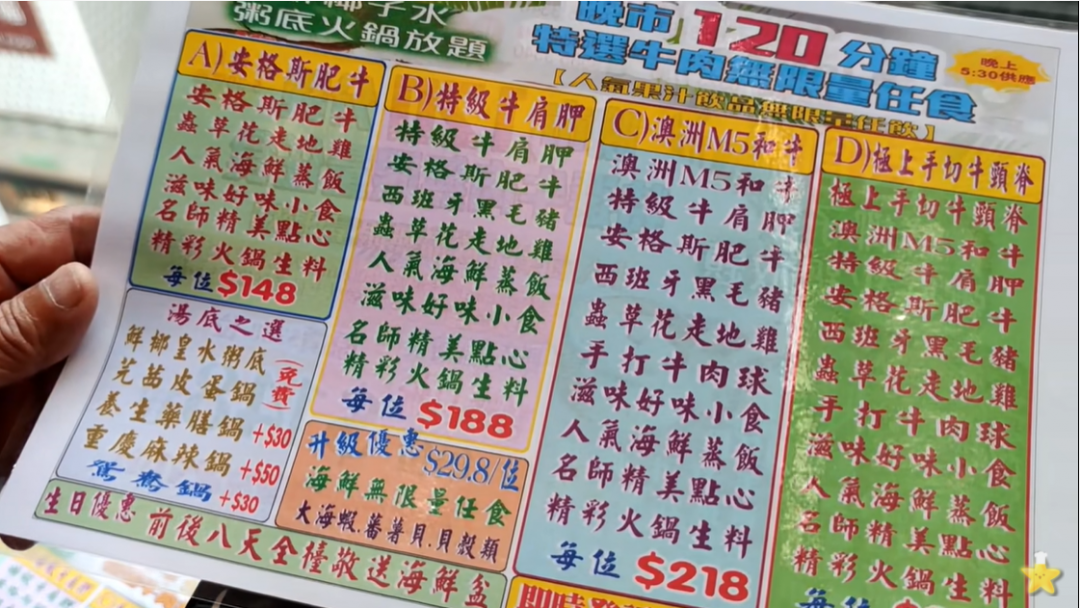 椰子水
粥底火鍋放題
晚市120分鐘
特選牛肉無限量任食
晚上
5:30供應
【人氣果汁飲品無限量任飲】
A)安格斯肥牛
安格斯肥牛
蟲草花走地雞
人氣海鮮蒸飯
滋味好味小食
名師精美點心
精彩火鍋生料
每位$148
B)特級牛肩胛
特級牛肩胛
安格斯肥牛
西班牙黑毛豬
蟲草花走地雞
人氣海鮮蒸飯
滋味好味小食
名師精美點心
精彩火鍋生料
每位$188
C)澳洲M5和牛
澳洲M5和牛
特級牛肩胛
安格斯肥牛
西班牙黑毛豬
蟲草花走地雞
手打牛肉球
滋味好味小食
人氣海鮮蒸飯
名師精美點心
精彩火鍋生料
每位$218
D)極上手切牛頸脊
極上手切牛頸脊
澳洲M5和牛
特級牛肩胛
安格斯肥牛
西班牙黑毛豬
蟲草花走地雞
手打牛肉球
滋味好味小食
人氣海鮮蒸飯
名師精美點心
精彩火鍋生料
每位
湯底之選
鮮椰皇水粥底(免費)
芫茜皮蛋鍋
養生藥膳鍋+$30
重慶麻辣鍋+$50
鴛鴦鍋+$30
升級優惠$29.8/位
海鮮無限量任食
大海蝦.蕃薯貝.貝殼類
生日優惠 前後八天全檯敬送海鮮盆
即時